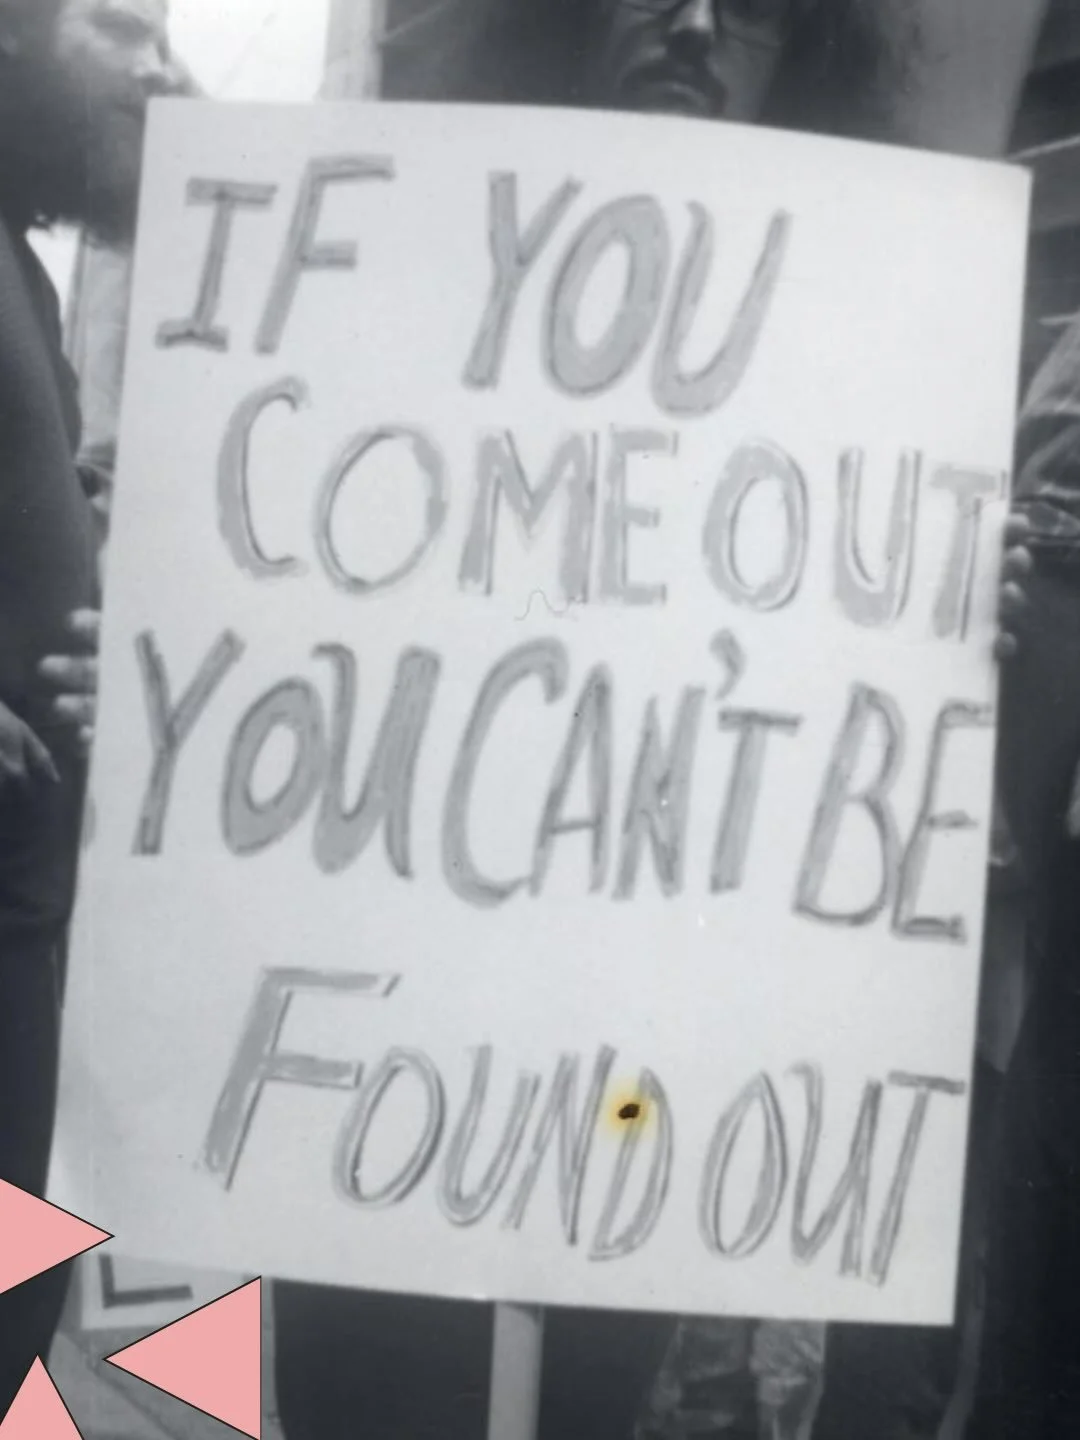 IF YOU
COME OUT
YOU CAN'T BE
FOUND OUT
L